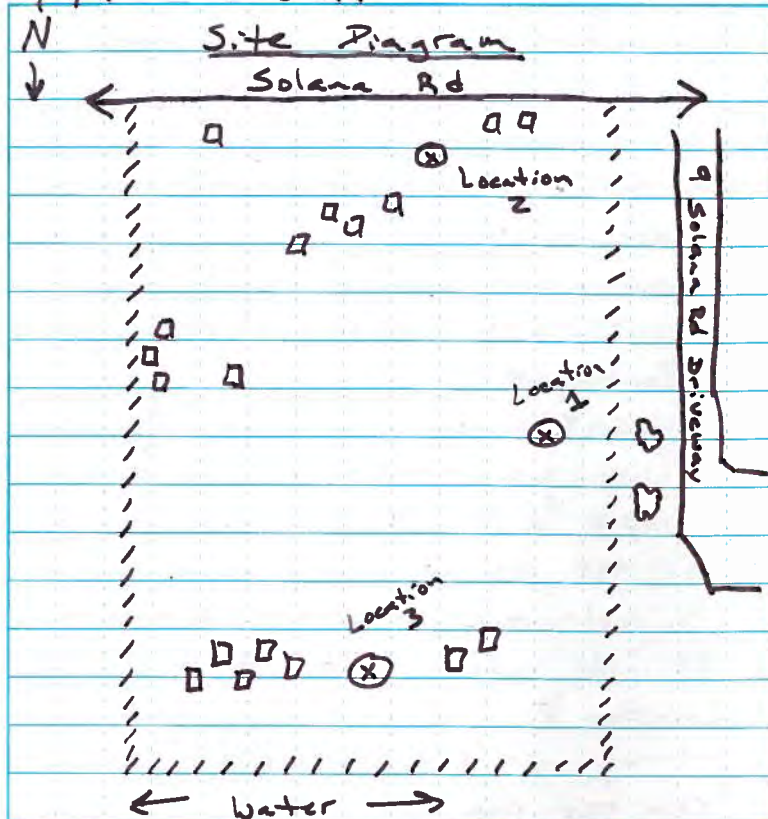 N
Site Diagram
Solana Rd
Location
2
9 Solana Rd Driveway
Location
1
Location
3
Water